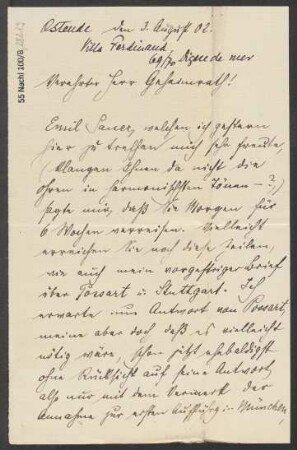 55 Nachl 100/B,
Ostende den 3. August 02.
Villa Ferdinand
69/70 Digue de mer
Verehrter Herr Geheimrath!
Emil Sauer, welchen ich gestern
hier zu treffen mich sehr freute,
(Klangen Ihnen da nicht die
Ohren in harmonischsten Tönen – ?)
sagte mir, daß Sie Morgen für
6 Wochen verreisen. Vielleicht
erreichen Sie noch diese Zeilen,
wie auch mein vorgestriger Brief
über Possart u. Stuttgart. Ich
erwarte nun Antwort von Possart,
meine aber doch daß es vielleicht
nötig wäre, schon jetzt ehebaldigst
ohne Rücksicht auf seine Antwort,
also nur mit dem Vermerk der
Annahme zur ersten Aufführung in München,